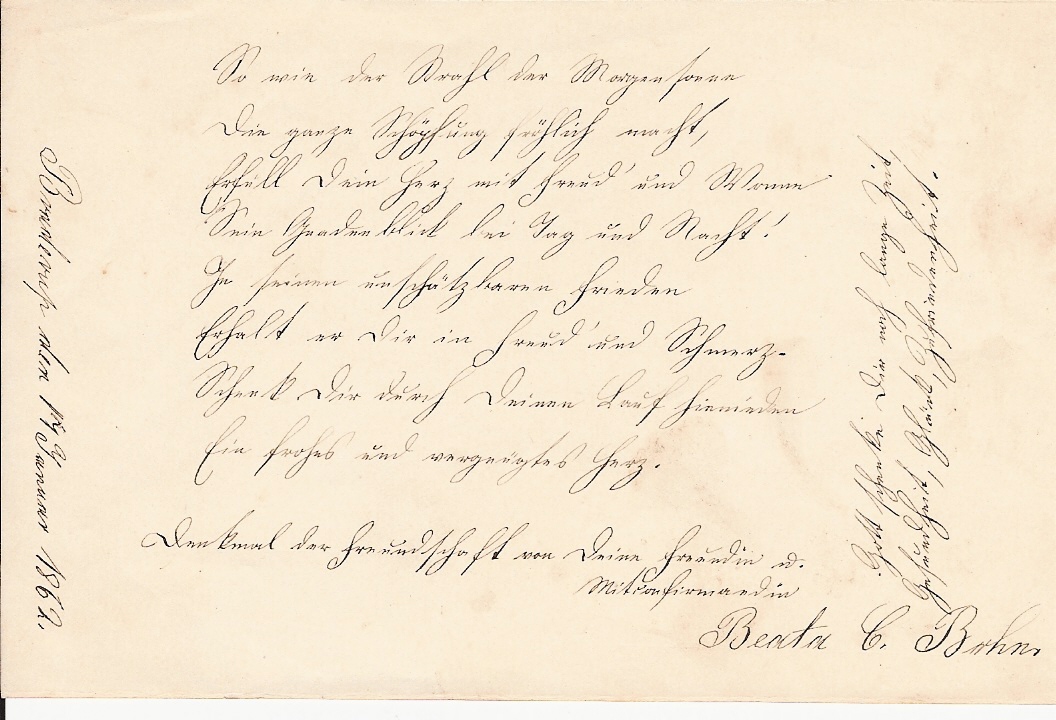 So wie der Strahl der Morgensonne
Die ganze Schöpfung fröhlich macht,
Erfüll Dein Herz mit Freud' und Wonne
Sein Gnadenblick bei Tag und Nacht!
In seinen unschätzbaren Frieden
Erhalt er Dir in Freud' und Schmerz.
Schenk Dir durch Deinen Lauf hienieden
Ein frohes und vergnügtes Herz.
Denkmal der Freundschaft von Deine Freundin u.
Mitconfirmandin
Beata C. Bohn.
Gott schenke Dir noch lange Zeit,
Gesundheit, Glück, Zufriedenheit.
den Januar 1862.